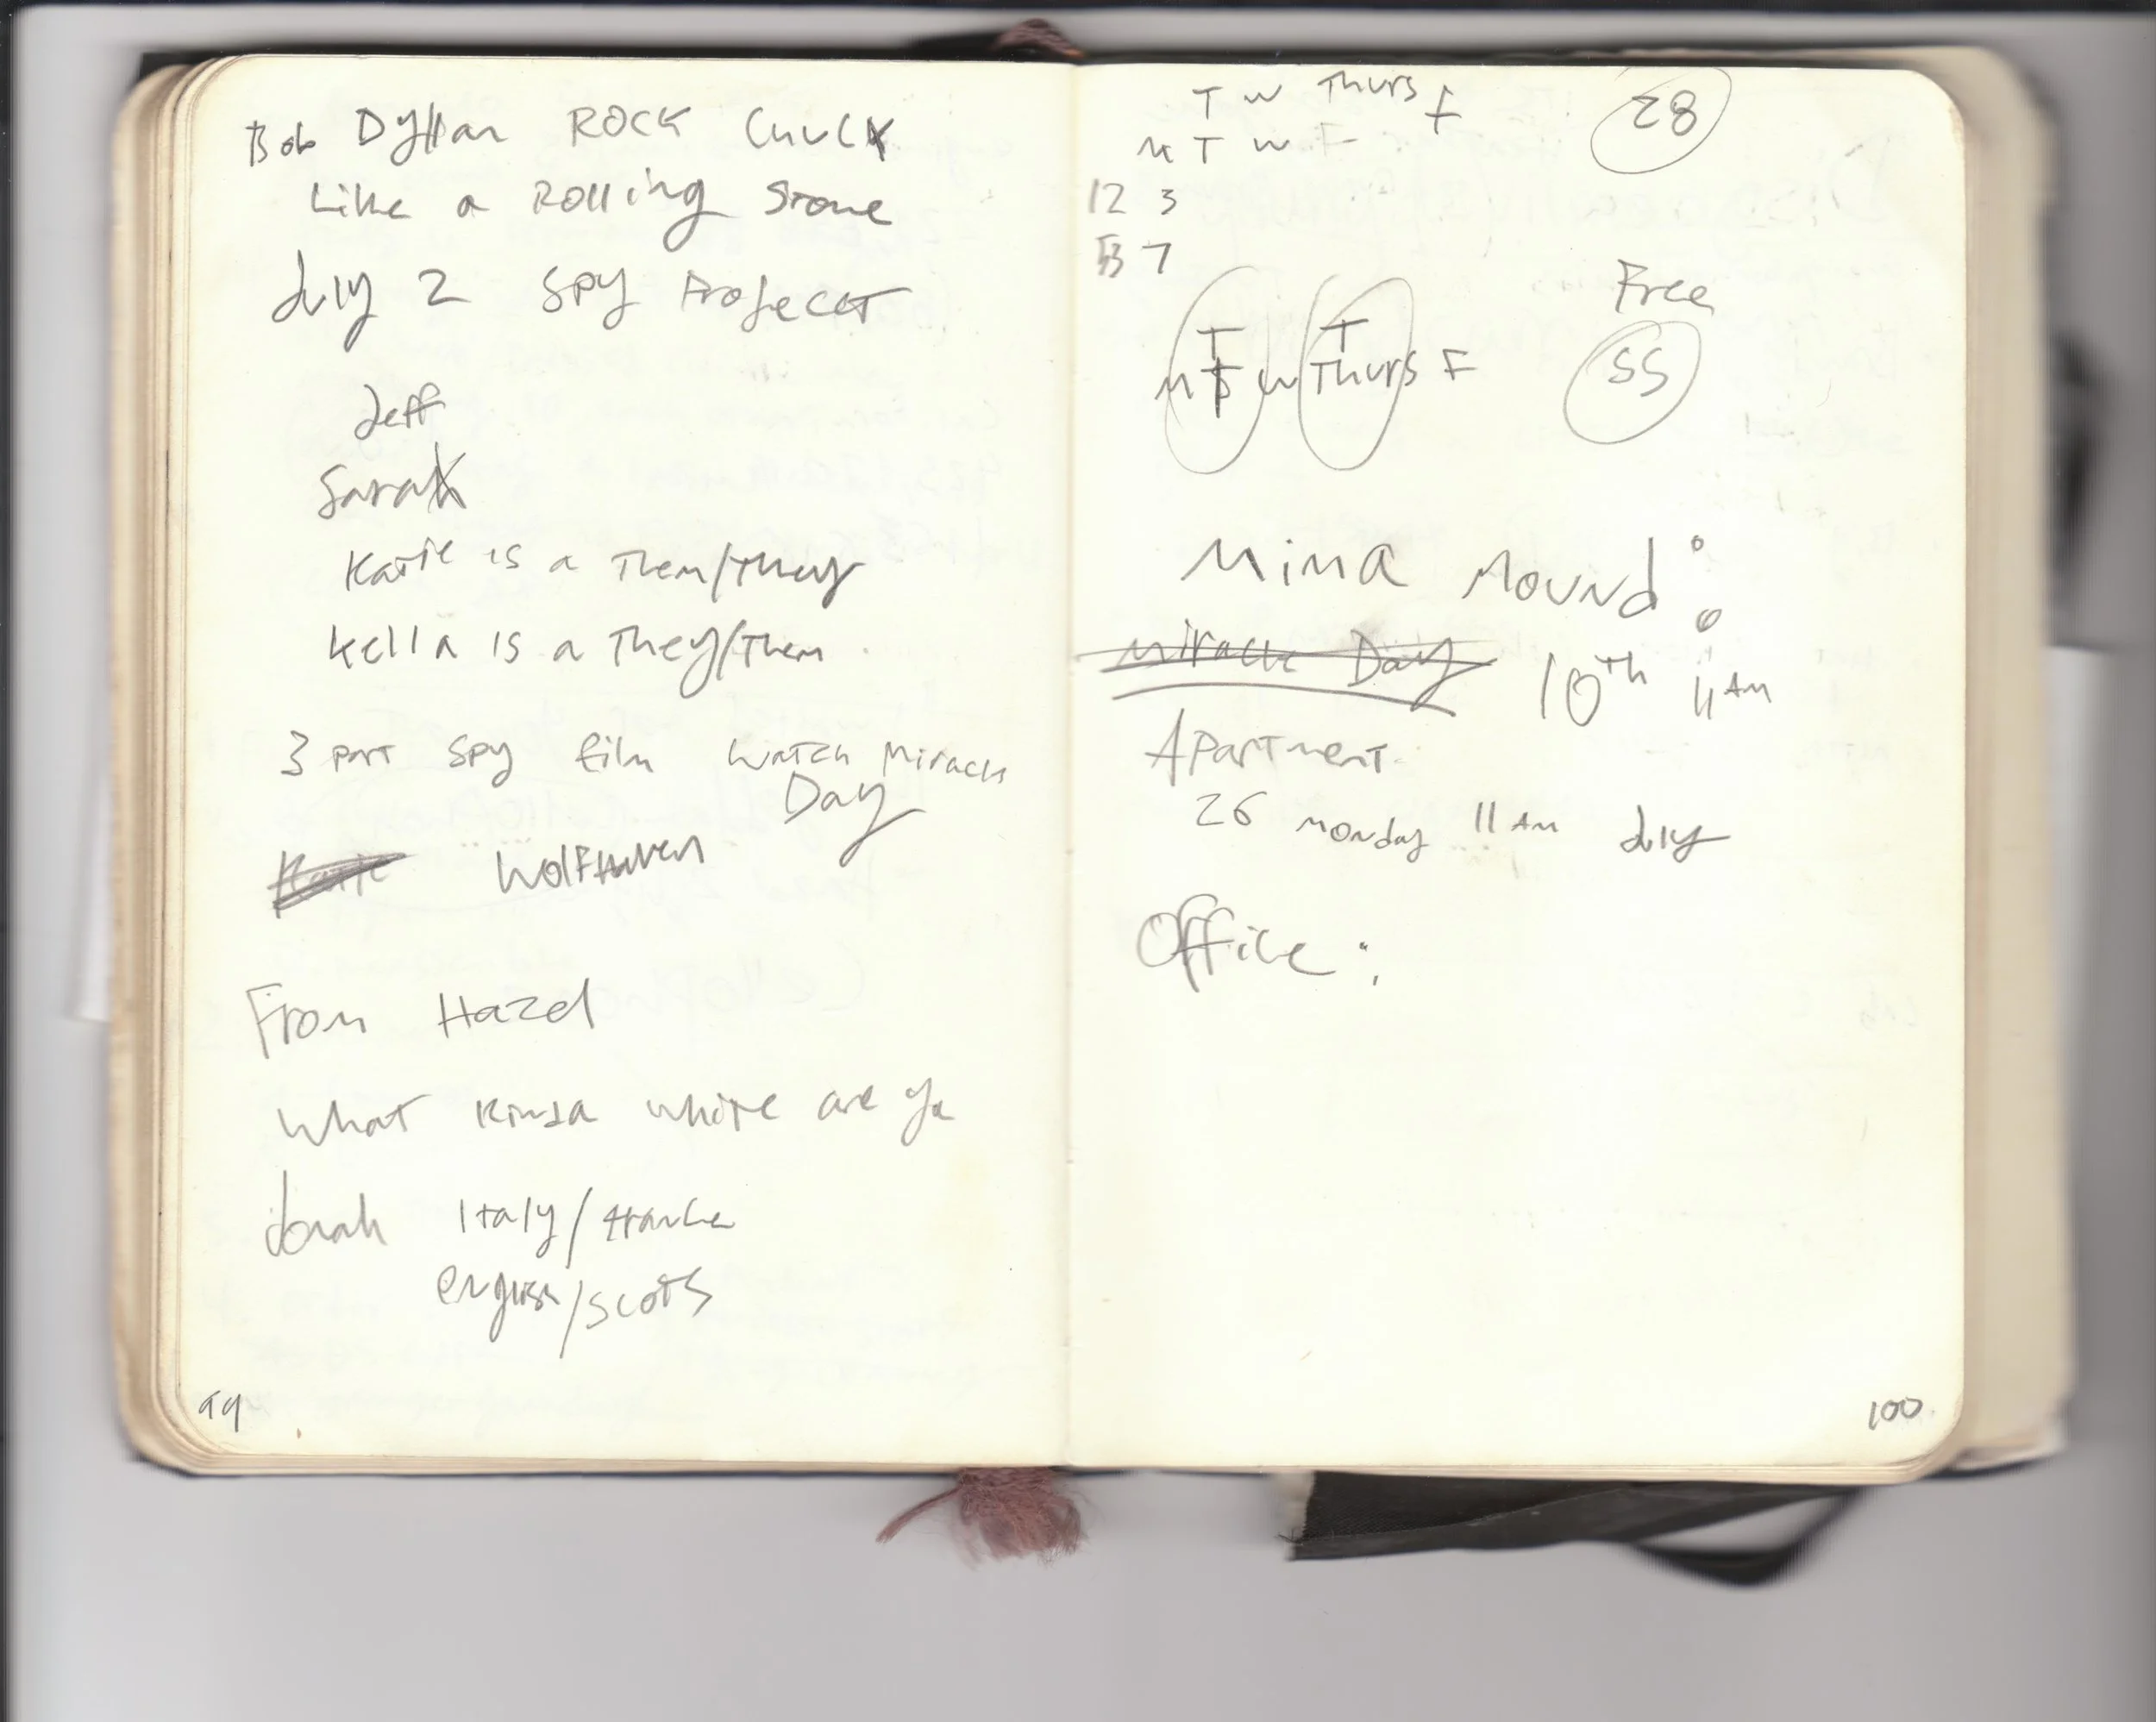 Bob Dyllan ROCK Chuck
Like a Rolling Stone
July 2 Spy Projecct
Jeff
Sarah
Katie is a Them/They
Kella is a They/Them
3 part spy film watch Miracle
Day
Katie Wolfhaven
From Hazel
What Kinda white are ya
Jonah Italy/
english/scots
99
T W Thurs F 28
M T W F
12 3
7
Free
T T
M T W Thurs F SS
Mima Mound:
Miracle Day 10th 11 AM
Apartment
26 Monday 11 AM July
Office:
100